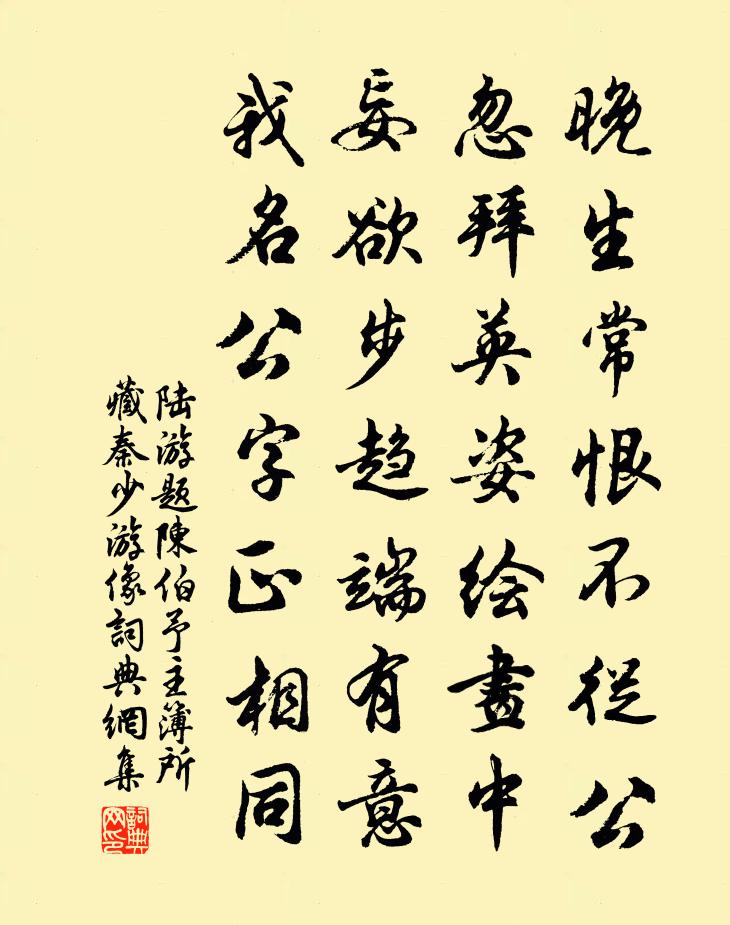 晚生常恨不従公
忽拜英姿绘畫中
妄欲步趋端有意
我名公字正相同
陆游题陳伯予主簿所
藏秦少游像詞典網集
詞典網印